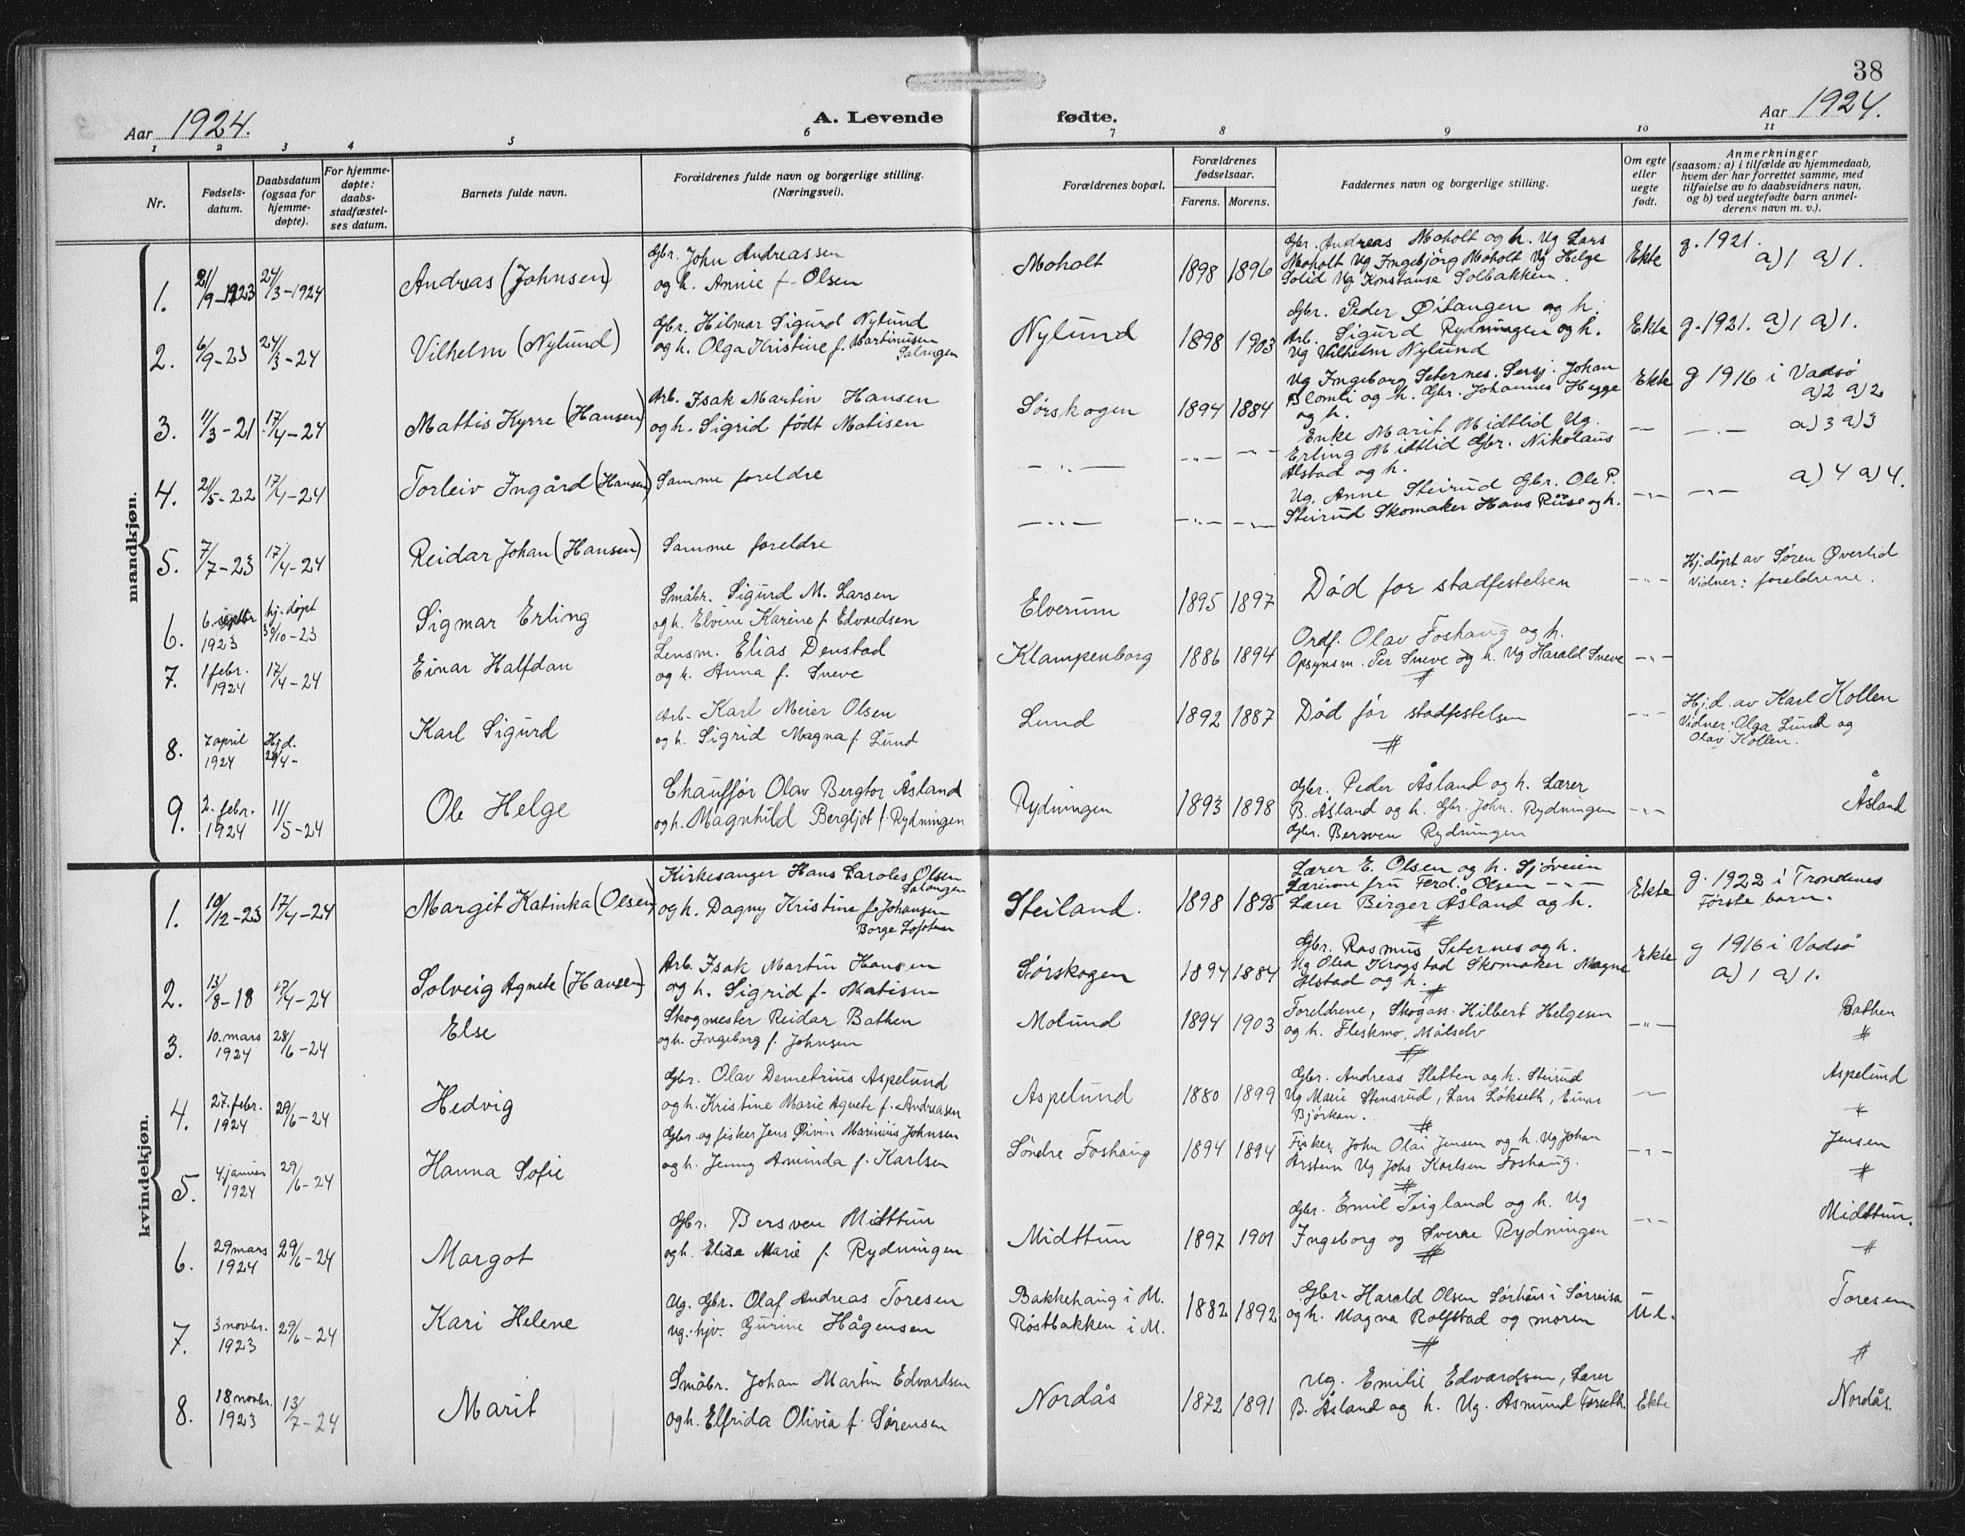 38
Aar 1924. A. Levende fødte. Aar 1924.
1 2 3 4 5 6 7 8 9 10 11
Nr.
Fødsels-
datum.
Daabsdatum
(ogsaa for
hjemme-
døpte).
For hjemme-
døpte:
daabs-
stadfæstel-
ses datum.
Barnets fulde navn.
Forældrenes fulde navn og borgerlige stilling.
(Næringsvei).
Forældrenes bopæl.
Forældrenes
fødselsaar.
Farens. Morens.
Faddernes navn og borgerlige stilling.
Om egte
eller
uegte
født.
Anmerkninger
(saasom: a) i tilfælde av hjemmedaab,
hvem der har forrettet samme, med
tilføielse av to daabsvidners navn,
og b) ved uegtefødte barn anmel-
derens navn m. v.).
mandkjøn.
1. 21/9-1923 24/3-1924 Andreas (Johnsen)
Gbr. John Andreassen
og h. Annie f. Olsen
Moholt 1898 1896
Gbr. Andreas Moholt og h. Ug Lars
Moholt Ug Ingebjørg Moholt Ug Helge
Solid Ug Konstanse Solbakken.
Ekte g. 1921.
a)1 a)1.
2. 6/9-23 24/3-24 Vilhelm (Nylund)
Gbr. Hilmar Sigurd Nylund
og h. Olga Kristine f. Martinusen
Salangen
Nylund 1898 1903
Gbr. Peder Øitangen og h.
Arb. Sigurd Rydningen og h.
Ug Vilhelm Nylund
Ekte g. 1921. a)1 a)1.
3. 11/3-21. 17/4-24 Mattis Kyrre (Hansen)
Arb. Isak Martin Hansen
og h. Sigrid født Matisen
Sørskogen 1894 1884
Ug Ingeborg Seternes. Sersj. Johan
Blomli og h. Gbr. Johannes Hegge
og h.
Ekte g 1916 i Vadsø
a)2 a)2
4. 21/5-22 17/4-24 Torleiv Ingård (Hansen) Samme foreldre
—„— —„— —„—
Enke Marit Midtlid Ug.
Erling Midtlid Gbr. Nikolaus
Alstad og h.
— —„— a)3 a)3
5. 7/7-23 17/4-24 Reidar Johan (Hansen) Samme foreldre
—„— —„— —„—
Ug. Anne Steirud Gbr. Ole P.
Steirud Skomaker Hans Riise og h.
—„— —„— a)4 a)4.
6. 6. septbr 1923 hj. døpt 30/10-23 Sigmar Erling
Småbr. Sigurd M. Larsen
og h. Elvine Karine f. Edvardsen
Elverum 1895 1897
Død for stadfestelsen
—„—
Hj. døpt av Søren Øverlid
Vidner: foreldrene.
7. 1 febr. 1924 17/4-24 Einar Halfdan
Lensm. Elias Denstad
og h. Anna f. Sneve
Klampenborg 1886 1894
Ordf. Olav Foshaug og h.
Opsynsm. Per Sneve og h. Ug Harald Sneve
—„—
8. 7 april 1924 Hj.d. 24/4- Karl Sigurd
Arb. Karl Meier Olsen
og h. Sigrid Magna f. Lund
Lund 1892 1887
Død før stadfestelsen
—„—
Hj.d. av Karl Kollen
Vidner: Olga Lund og
Olav Kollen.
9. 2. febr. 1924 11/5-24 Ole Helge
Chauffør Olav Bergtor Åsland
og h. Magnhild Bergljot f. Rydningen
Rydningen 1893 1898
Gbr. Peder Åsland og h. Lærer
B. Åsland og h. Gbr. John. Rydningen
Gbr. Bersven Rydningen
—„— Åsland
kvindekjøn.
1. 10/12-23 17/4-24 Margit Katinka (Olsen)
Kirkesanger Hans Caroles Olsen
Salangen
og h. Dagny Kristina f. Johansen
Borge Lofoten
Steiland. 1898 1895
Lærer E. Olsen og h. Sjøveien
Lærinne fru Ferd. Olsen —„—
Lærer Berger Åsland og h.
Ekte g. 1922 i Trondenes
Første barn.
2. 13/8-18 17/4-24 Solveig Agnete (Hansen)
Arb. Isak Martin Hansen
og h. Sigrid f. Matisen
Sørskogen 1894 1884
Gbr. Rasmus Seternes og h.
Ug Olea Krogstad Skomaker Magne
Alstad og h.
Ekte g 1916 i Vadsø
a)1 a)1.
3. 10. mars 1924 28/6-24 Else
Skogmester Reidar Bathen
og h. Ingeborg f. Johnsen
Molund 1894 1903
Foreldrene, Skogass. Hilbert Helgesen
og h. Fleskmo, Målselv
—„— Bathen
4. 27. febr. 1924 29/6-24 Hedvig
Gbr. Olav Demetrius Aspelund
og h. Kristine Marie Agnete f. Andreasen
Aspelund 1880 1899
Gbr. Andreas Sletten og h. Steirud
Ug Marie Stensrud, Lars Løkseth, Einar
Bjørkan.
—„— Aspelund
5. 4 januar 1924 29/6-24 Hanna Sofie
Gbr. og fisker Jens Øivin Marinius Johnsen
og h. Jenny Aminda f. Karlsen
Søndre Foshaug 1894 1894
Fisker John Olai Jensen og h. Ug Johan
Arstein Ug Johs Karlsen Foshaug.
—„— Jensen
6. 29 mars 1924 29/6-24 Margot
Gbr. Bersven Midttun
og h. Elise Marie f. Rydningen
Midttun 1897 1901
Gbr. Emil Teigland og h. Ug
Ingeborg og Sverre Rydningen
—„— Midttun.
7. 3 novbr. 1923 29/6-24 Kari Helene
Ug. Gbr. Olaf Andreas Toresen
Ug. hjv. Gurine Hågensen
Bakkehaug i M.
Røstbakken i M.
1882 1892
Gbr. Harald Olsen Sørhus i Sørreisa
og h. Magna Rolfstad og moren
U e. Toresen
8. 18 novbr. 1923 13/7-24 Marit
Småbr. Johan Martin Edvardsen
og h. Elfrida Olivia f. Sørensen
Nordås 1872 1891
Ug. Emilie Edvardsen, Lærer
B. Åsland og h. Ug. Asmund Forseth.
Ekte Nordås.